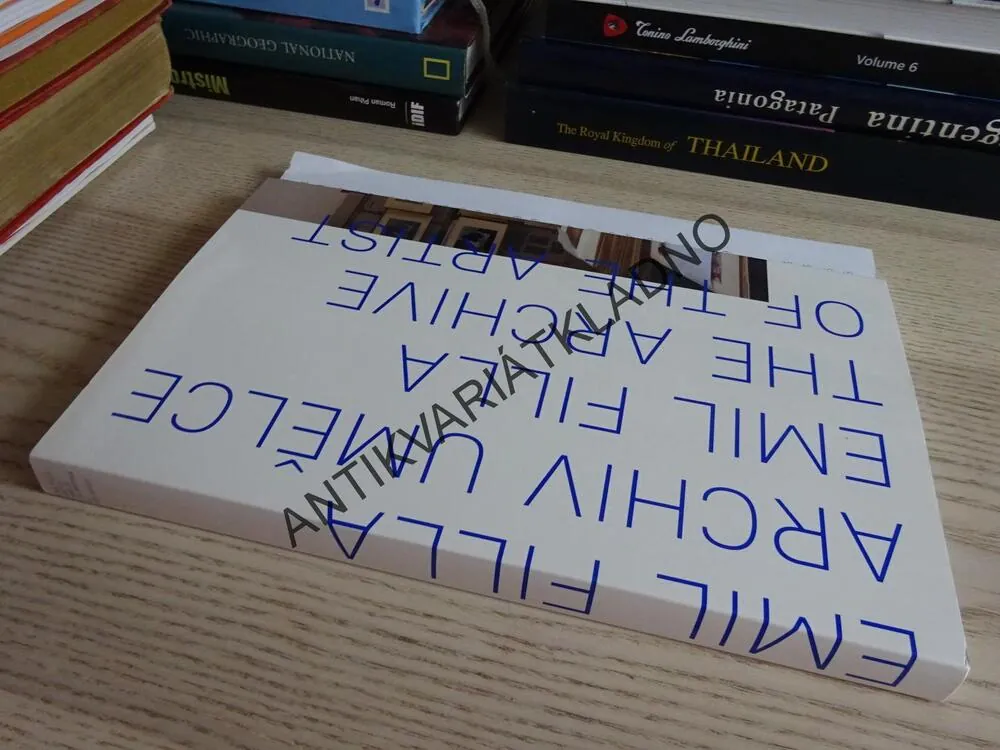 EMIL FILLA
ARCHIV UMĚLCE
EMIL FILLA
THE ARCHIVE
OF THE ARTIST
ANTIKVARIÁTKLADNO
NATIONAL GEOGRAPHIC
Mistr
Roman Pihan
iDIF
Tonino Lamborghini
Volume 6
gentina
Patagonia
The Royal Kingdom of THAILAND